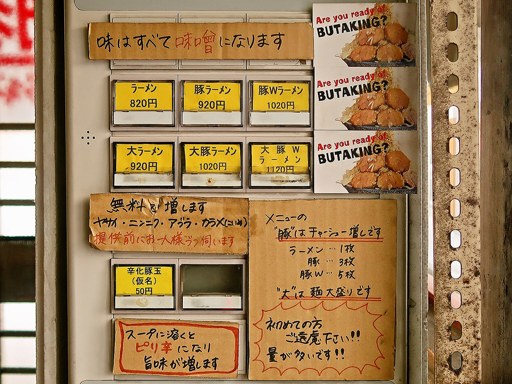 味はすべて味噌になります
Are you ready at
BUTAKING?
Are you ready at
BUTAKING?
Are you ready at
BUTAKING?
ラーメン
820円
豚ラーメン
920円
豚Wラーメン
1020円
大ラーメン
920円
大豚ラーメン
1020円
大 豚 W
ラーメン
1120円
無料で増します
ヤサイ・ニンニク・アブラ・カラメ(コイ)
提供前にお一人様ずつ伺います
辛化豚玉
(仮名)
50円
スープに溶くと
ピリ辛になり
旨味が増します
メニューの
"豚"はチャーシュー増しです
ラーメン…1枚
豚…3枚
豚W…5枚
"大"は麺大盛りです
初めての方
ご遠慮下さい!!
量が多いです!!